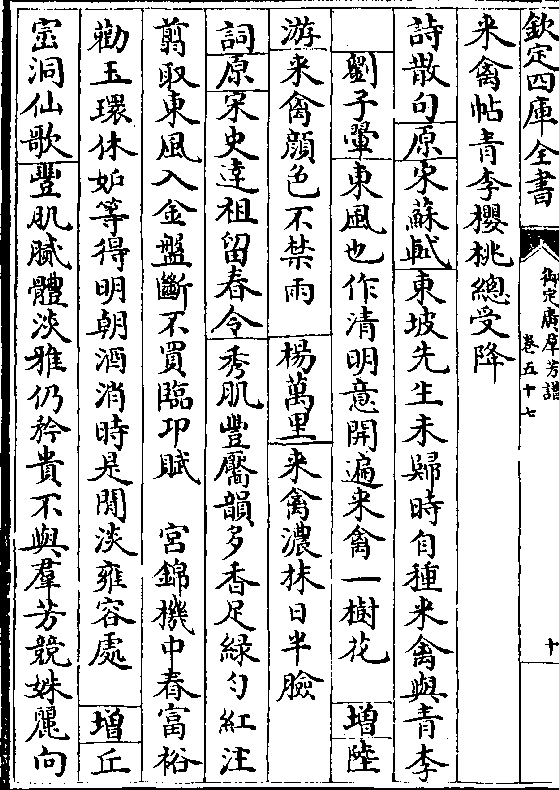 欽定四庫全書
御定廣羣芳譜
卷五十七
十
来禽帖青李櫻桃總受降
詩散句原宋蘇軾東坡先生未歸時自種来禽與青李
劉子翬東風也作清明意開遍来禽一樹花 增陸
游来禽顔色不禁雨 楊萬里来禽濃抹日半臉
詞原宋史達祖留春令秀肌豐靨韻多香足緑匀紅注
剪取東風入金盤斷不買臨卭賦 宫錦機中春富裕
勸玉環休妬等得明朝酒消時是閒淡雍容處 增丘
崈洞仙歌豐肌膩體淡雅仍矜貴不與羣芳競姝麗向